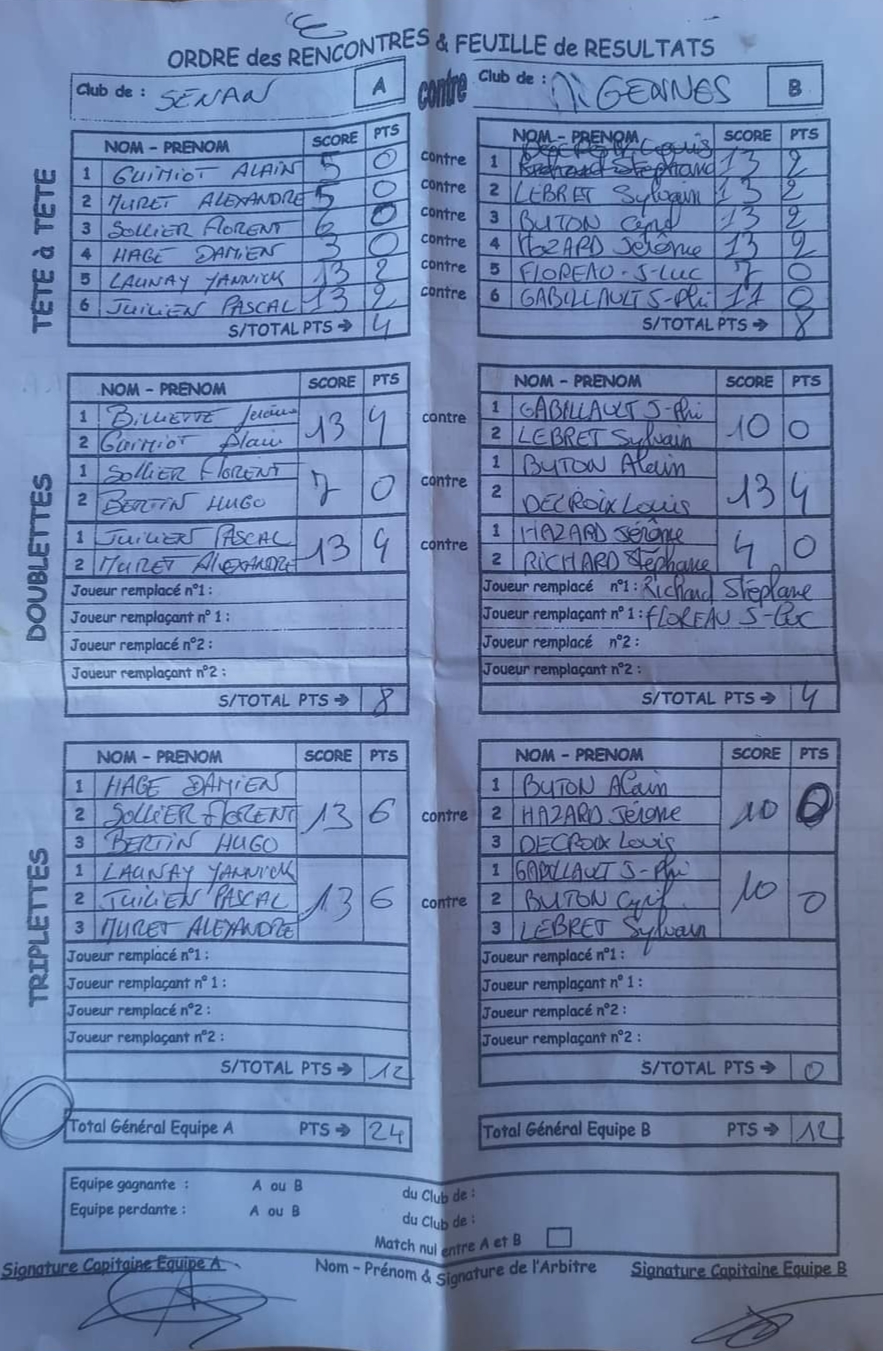 ORDRE des RENCONTRES & FEUILLE de RESULTATS
Club de : SENAN A contre Club de : MIGENNES B
TÊTE à TÊTE
NOM - PRENOM SCORE PTS
1 GUIMIOT ALAIN 5 0
2 MURET ALEXANDRE 5 0
3 SOLLIER FLORENT 6 0
4 HAGE DAMIEN 3 0
5 LAUNAY YANNICK 13 2
6 JUILIEN PASCAL 13 2
S/TOTAL PTS → 4
contre
contre
contre
contre
contre
contre
NOM - PRENOM SCORE PTS
1 Louis 13 2
2 LEBRET Sylvain 13 2
3 BUTON Cyril 13 2
4 HAZARD Jérôme 13 2
5 FLOREAU J-Luc 7 0
6 GABILLAULT J-Phi 11 0
S/TOTAL PTS → 8
DOUBLETTES
NOM - PRENOM SCORE PTS
1 BILLIETTE Jérôme
2 GUIMIOT Alain 13 4
1 SOLLIER FLORENT
2 BERTIN HUGO 7 0
1 JUILIEN PASCAL
2 MURET ALEXANDRE 13 4
Joueur remplacé n°1 :
Joueur remplaçant n° 1 :
Joueur remplacé n°2 :
Joueur remplaçant n°2 :
S/TOTAL PTS → 8
contre
contre
contre
NOM - PRENOM SCORE PTS
1 GABILLAULT J-Phi
2 LEBRET Sylvain 10 0
1 BUTON Alain
2 DECROIX Louis 13 4
1 HAZARD Jérôme
2 RICHARD Stéphane 4 0
Joueur remplacé n°1 : Richard Stéplane
Joueur remplaçant n° 1 : FLOREAU J-Luc
Joueur remplacé n°2 :
Joueur remplaçant n°2 :
S/TOTAL PTS → 4
TRIPLETTES
NOM - PRENOM SCORE PTS
1 HAGE DAMIEN
2 SOLLIER FLORENT 13 6
3 BERTIN HUGO
1 LAUNAY YANNICK
2 JUILIEN PASCAL 13 6
3 MURET ALEXANDRE
Joueur remplacé n°1 :
Joueur remplaçant n° 1 :
Joueur remplacé n°2 :
Joueur remplaçant n°2 :
S/TOTAL PTS → 12
contre
contre
NOM - PRENOM SCORE PTS
1 BUTON Alain
2 HAZARD Jérome 10 0
3 DECROIX Louis
1 GABILLAULT J-Phi
2 BUTON Cyril 10 0
3 LEBRET Sylvain
Joueur remplacé n°1 :
Joueur remplaçant n° 1 :
Joueur remplacé n°2 :
Joueur remplaçant n°2 :
S/TOTAL PTS → 0
Total Général Equipe A PTS → 24
Total Général Equipe B PTS → 12
Equipe gagnante : A ou B du Club de :
Equipe perdante : A ou B du Club de :
Match nul entre A et B
Signature Capitaine Equipe A
Nom - Prénom & Signature de l'Arbitre
Signature Capitaine Equipe B